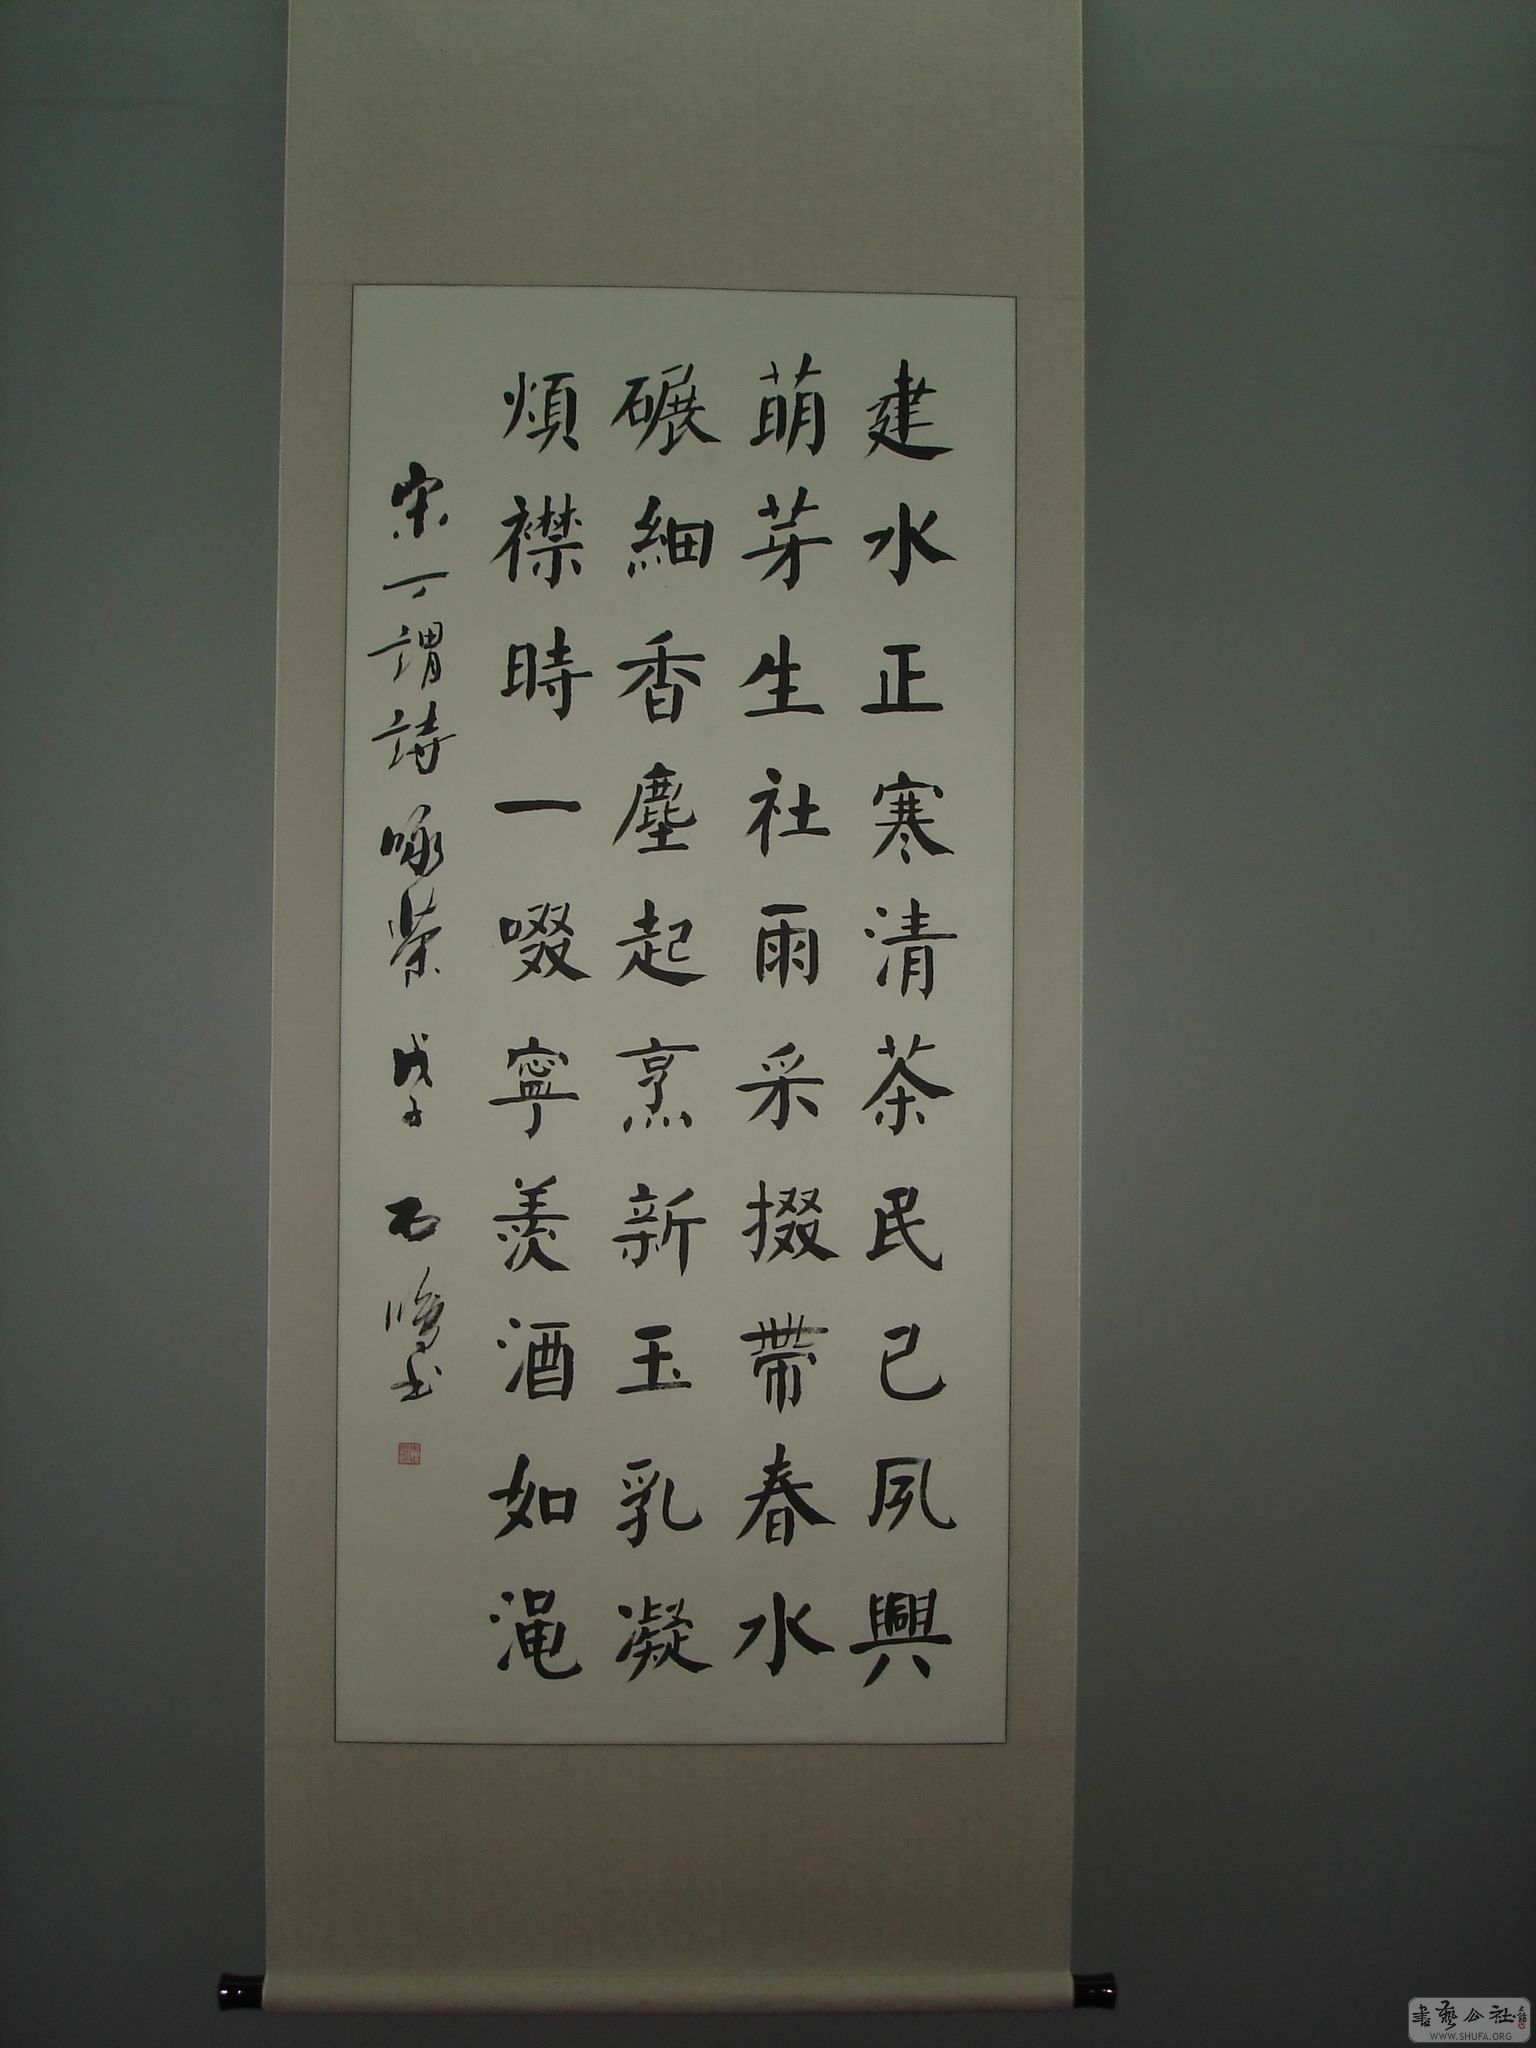 建水正寒清茶民已夙興
萌芽生社雨采掇帶春水
碾細香塵起烹新玉乳凝
煩襟時一啜寧羨酒如渑
宋丁謂詩咏茶 戊子 石
書藝公社
WWW.SHUFA.ORG